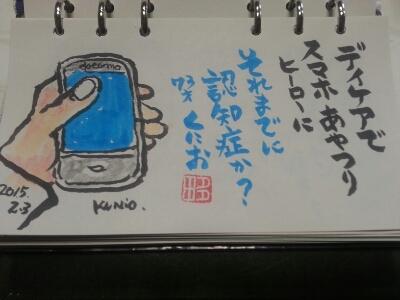 ディケアで
スマホあやつり
ヒーローに
それまでに
認知症か?
73才 くにお
docomo
KUNiO.
2015
2.3